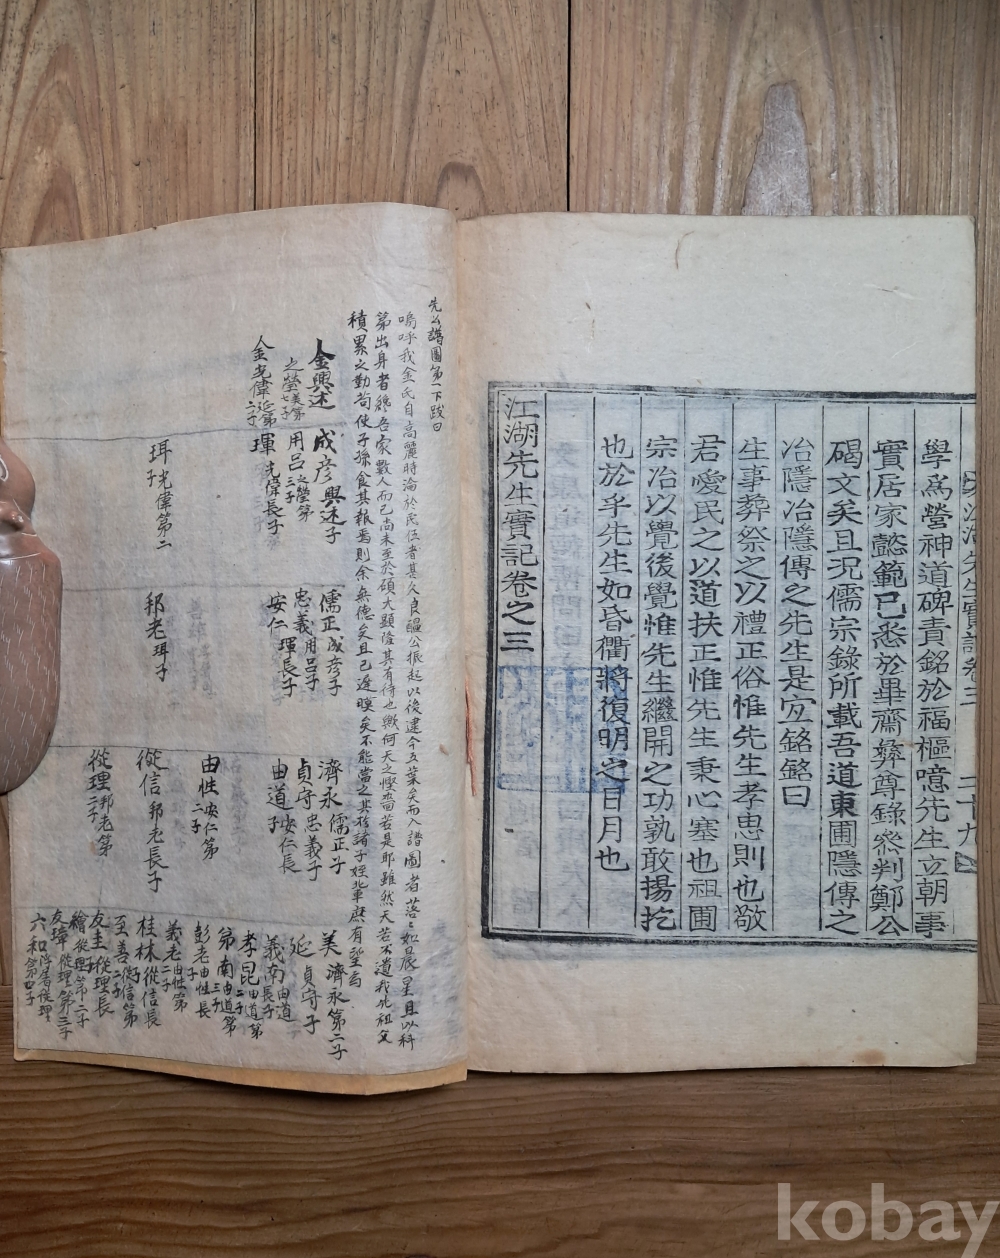 江湖先生實記卷之三 二十九
學爲營神道碑責銘於福樞噫先生立朝事
實居家懿範已悉於畢齋彜尊錄叅判鄭公
碣文矣且况儒宗錄所載吾道東圃隱傳之
冶隱冶隱傳之先生是宜銘銘曰
生事葬祭之以禮正俗惟先生孝思則也敬
君愛民之以道扶正惟先生秉心塞也祖圃
宗冶以覺後覺惟先生繼開之功孰敢揚扢
也於乎先生如昏衢將復明之日月也
江湖先生實記卷之三
先公譜圖第一下跋曰
嗚呼我金氏自高麗時淪於民伍者甚久良醞公振起以後逮今五葉矣而入譜圖者落落如晨星且以科
第出身者纔吾家數人而已尚未至於碩大顯隆其有待也歟何天之慳嗇若是耶雖然天若不遺我先祖父
積累之勤苟使子孫食其報焉則余無德矣且已遲暯矣不能當之其於諸子姪輩庶有望焉
金興述 成彦興述子 儒正成彦子 濟永儒正子 美濟永第二子
之瑩美第七子 用呂之瑩第三子 忠義用呂子 貞守忠義子 延貞守子
金光偉延第二子 琿光偉長子 安仁琿長子 由道安仁長子 義南由道長子
孝昆由道第二子
第南由道第三子
由性安仁第二子 彭老由性長子
義老由性第二子
珥光偉第二子 邦老珥子 從信邦老長子 桂林從信長子
至善從信第二子
從理邦老第二子 友圭從理長子
繪從理第二子
友璋從理第三子
六和從理第四子
kobay